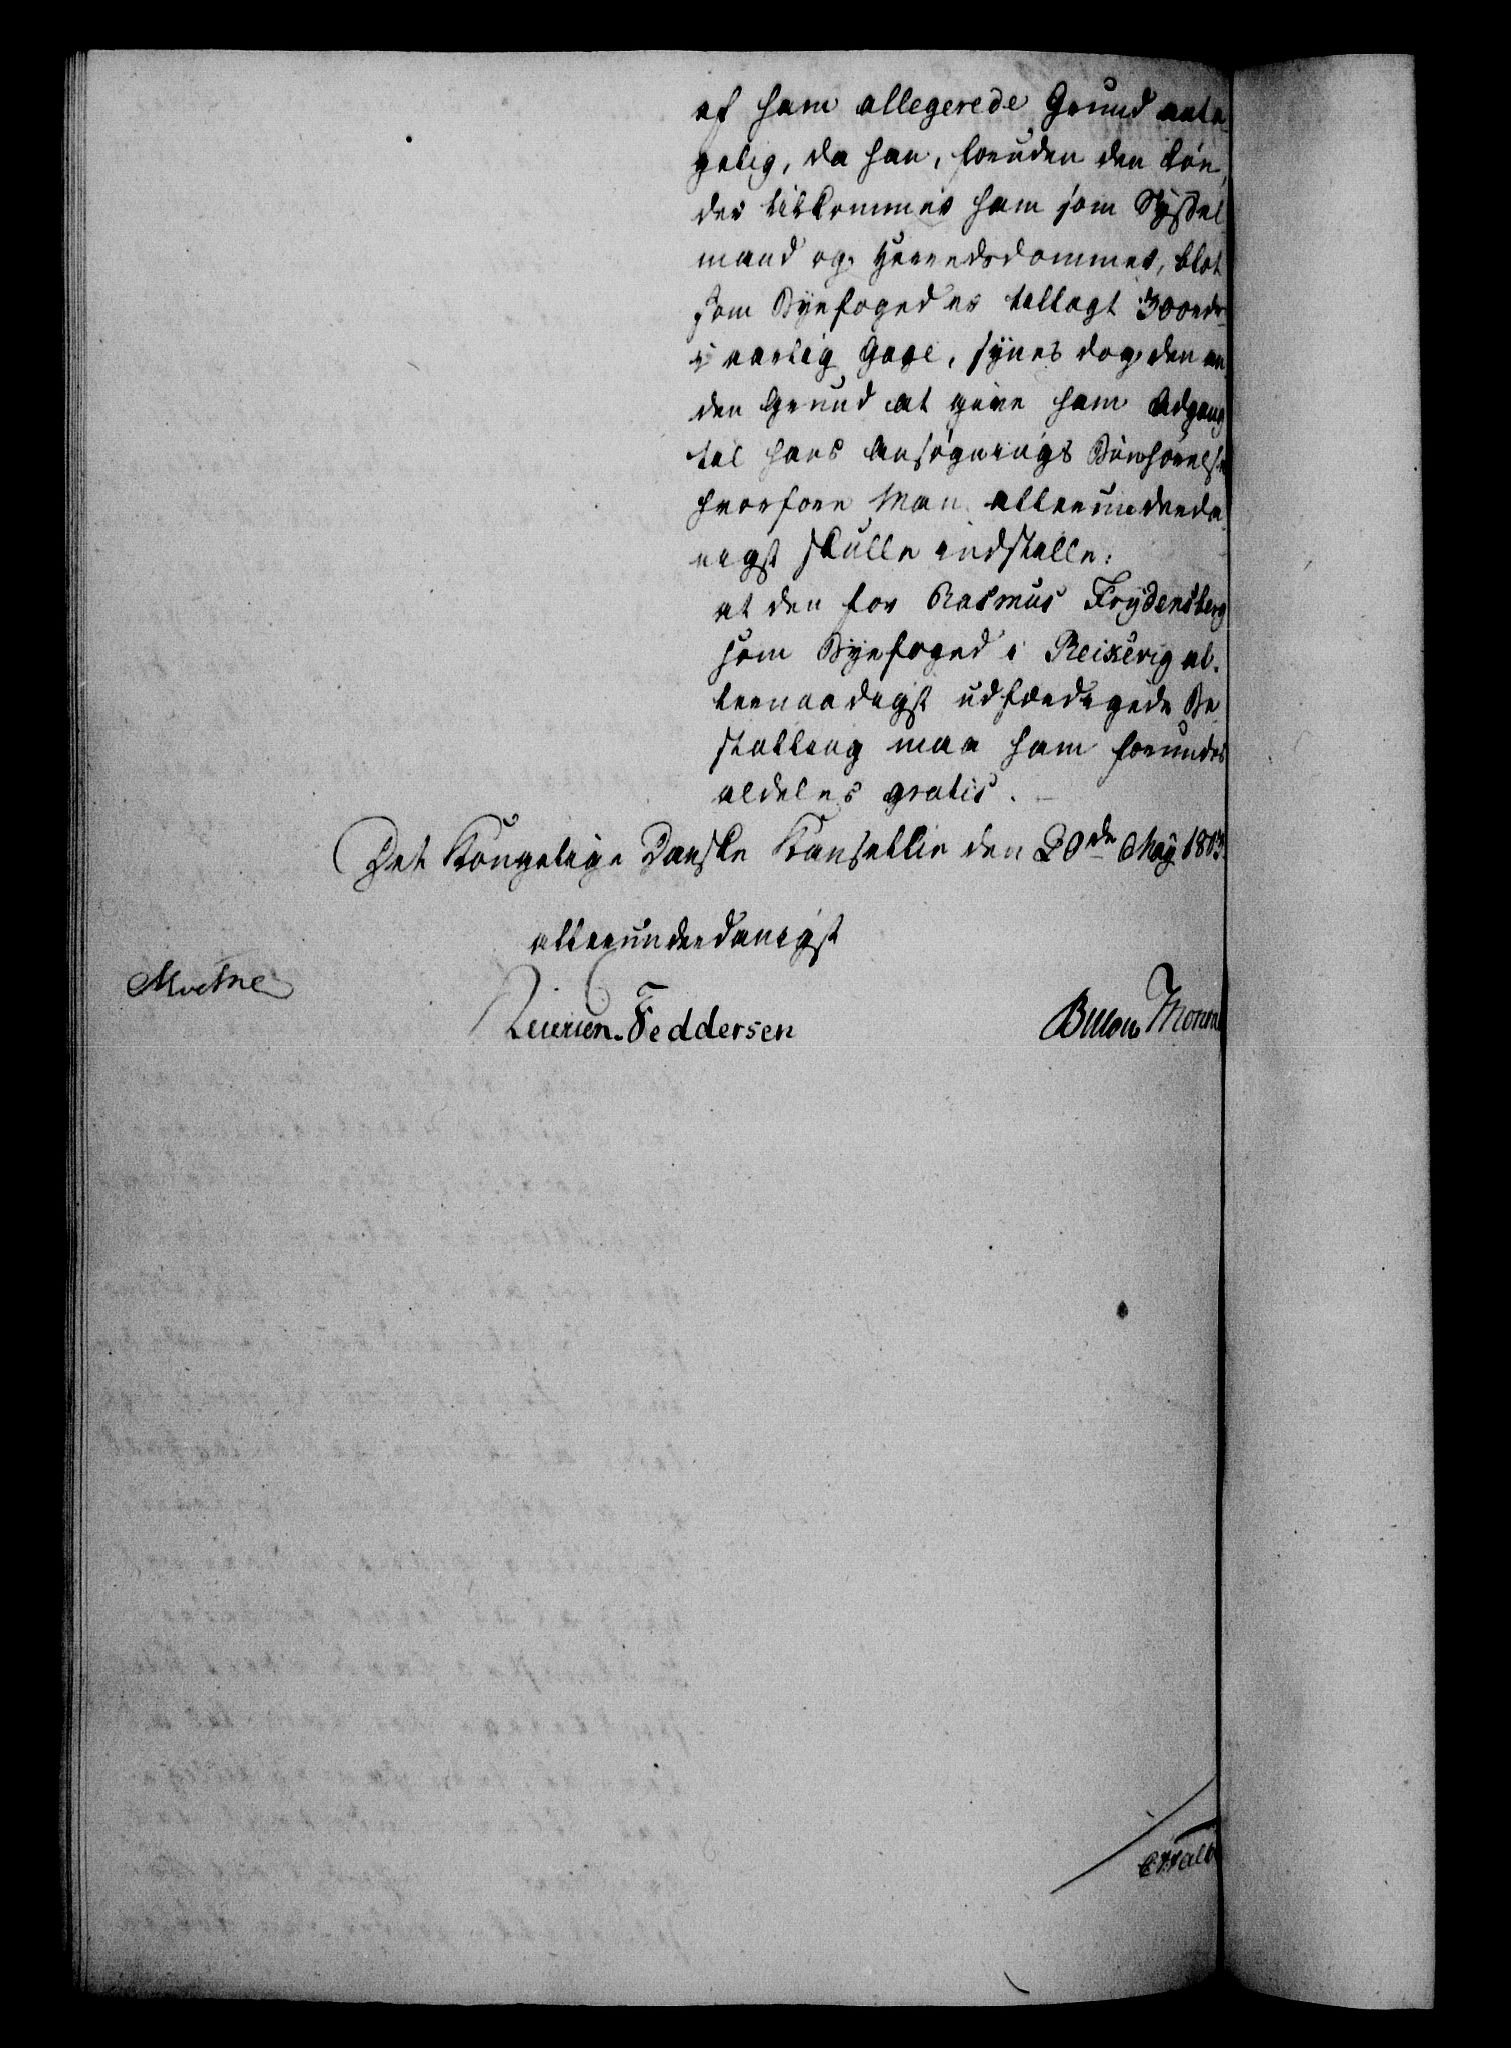 af ham allegerede Grund anta-
gelig, da han, foruden den Løn,
der tilkommer ham som Syssel
mand og Herredsdommer, blot
som Byefoged er tillagt 300rdr
i aarlig Gage, synes dog den an-
den Grund at give ham Adgang
til hans Ansøgnings Bønhørelse
hvorfore Man allerunderda-
nigst skulle indstille:
at den for Rasmus Frydensberg
som Byefoged i Reikevig al-
lernaadigst udfærdigede Be-
stalling maa ham forundes
aldeles gratis.
Det Kongelige Danske Kancellie den 20de May 1813.
allerunderdanigst
Feddersen
Bülow Monrad